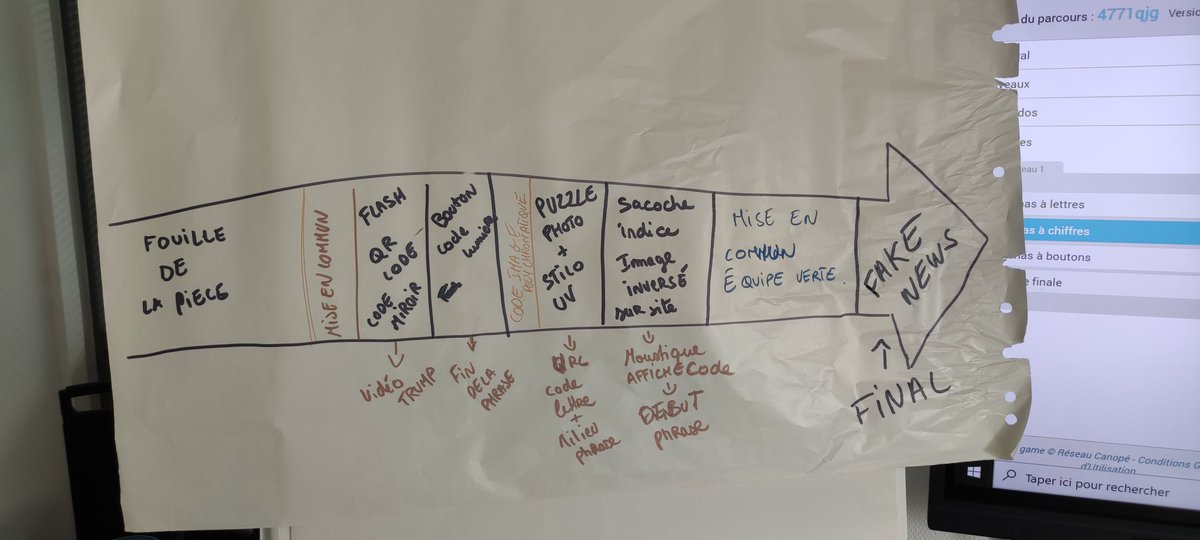 FOUILLE
DE
LA PIECE
MISE EN COMMUN
FLASH
QR
CODE
CODE
MIROIR
Bouton
code
lumière
CODE IMAGE
PUZZLE
PHOTO
+
STILO
UV
Sacoche
indice
Image
inversé
sur site
MISE EN
COMMUN
ÉQUIPE VERTE.
FAKE
NEWS
Vidéo
TRUMP
FIN
DE LA
PHRASE
code
lettre
+
Milieu
phrase
Moustique
AFFICHE Code
DEBUT
phrase
FINAL
du parcours : 4771qjg Versio
al
eaux
dos
es
eau 1
as à lettres
as à chiffres
as à boutons
e finale
game © Réseau Canopé - Conditions G
d'Utilisation
Taper ici pour rechercher